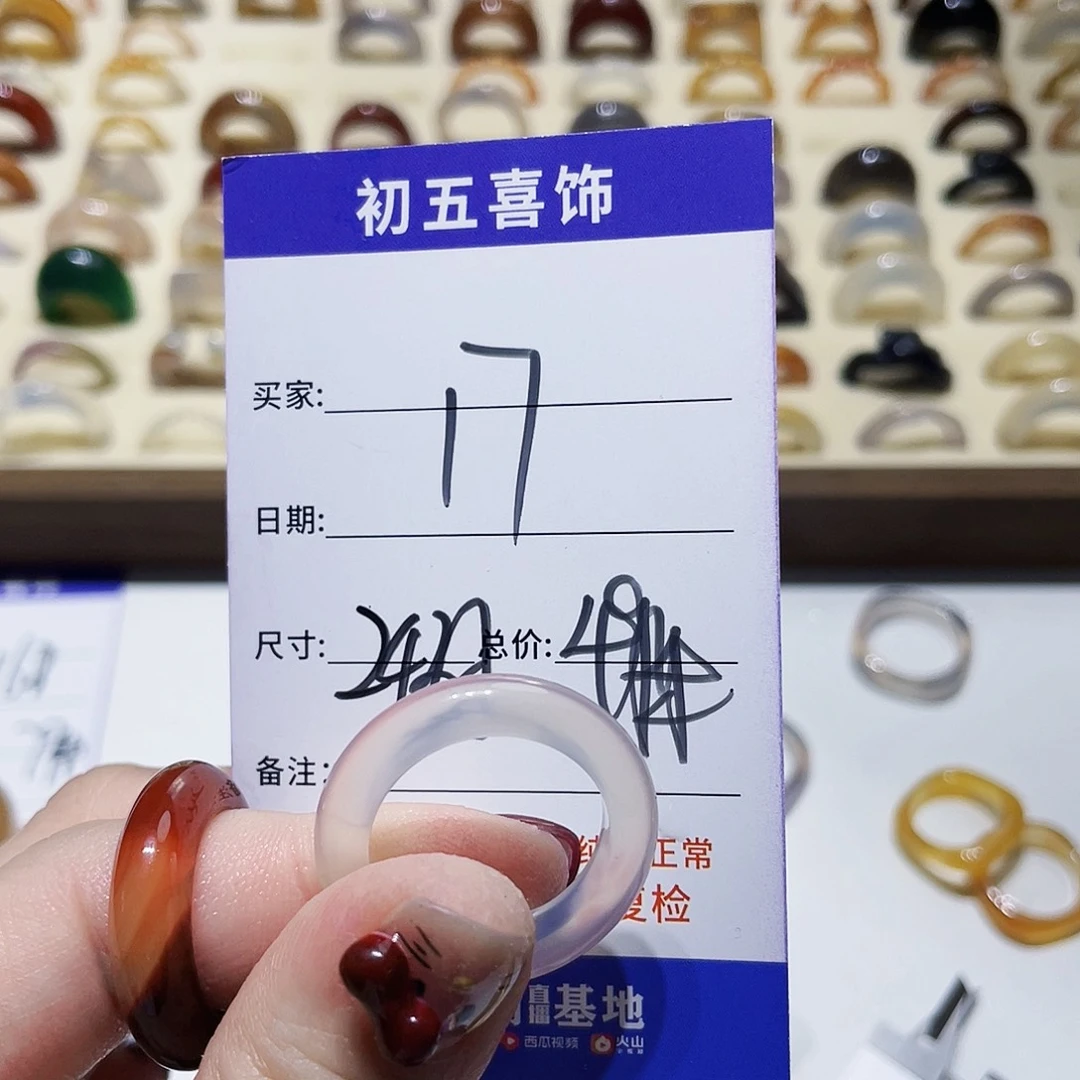 初五喜饰
买家:
17
日期:
尺寸: 总价:
备注:
正常
复检
直播基地
西瓜视频 火山